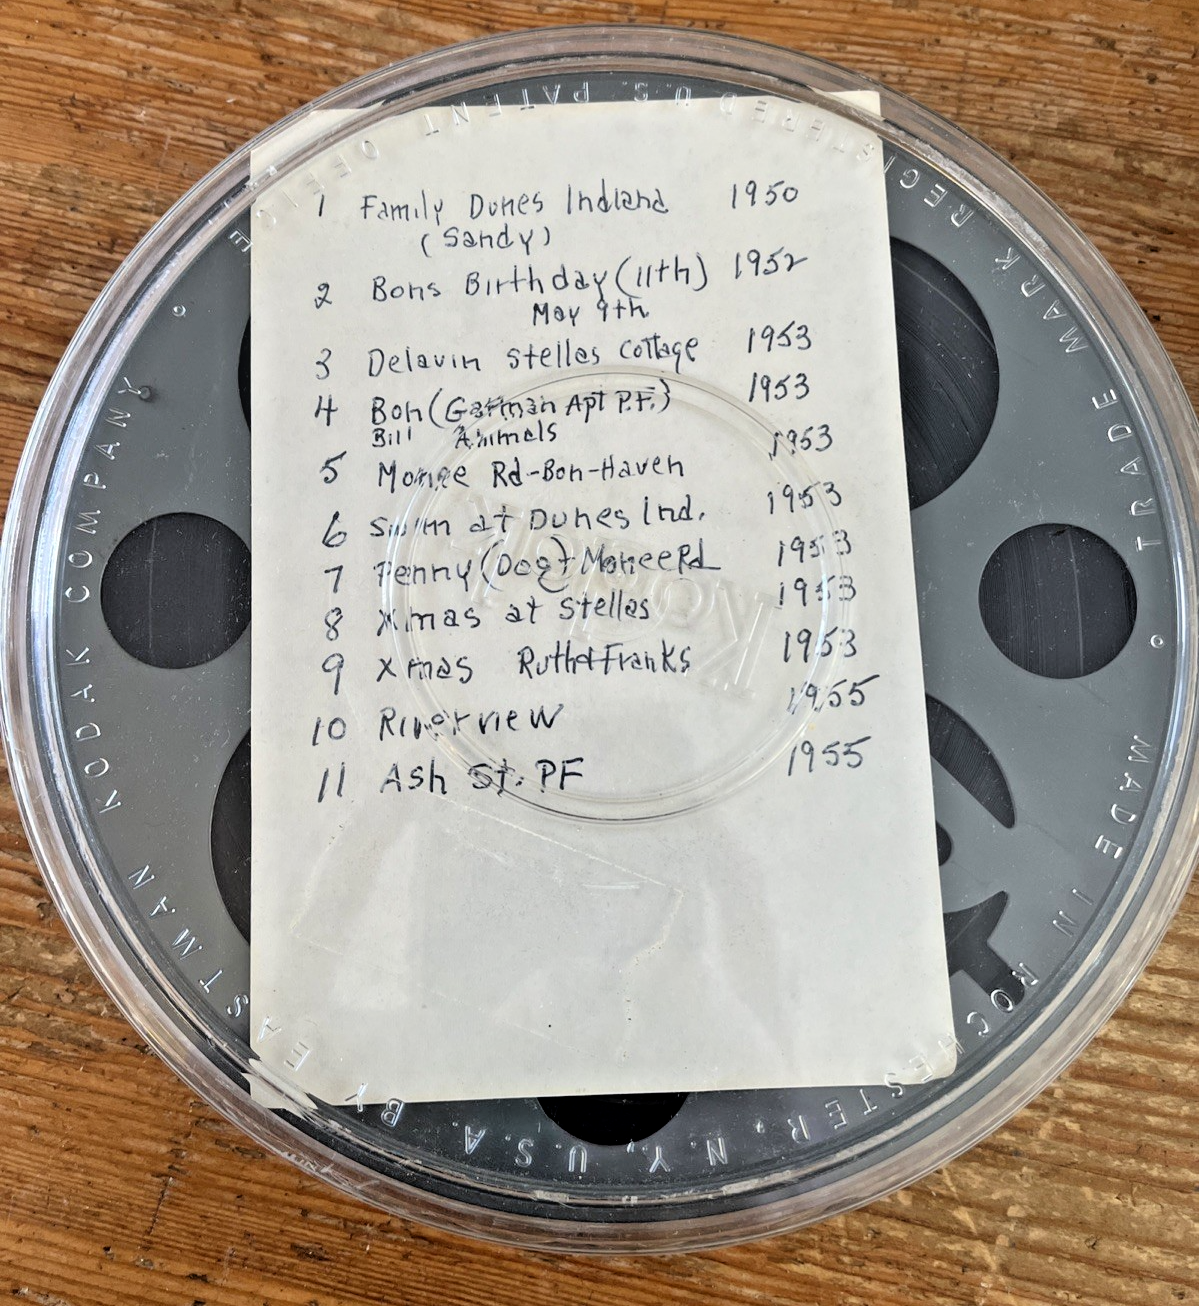 1 Family Dunes Indiana 1950
(Sandy)
2 Bons Birthday (11th) 1952
May 9th
3 Delavin Stellas Cottage 1953
4 Bon (Garman Apt P.F.) 1953
Bill Animals
5 Monee Rd-Bon-Haven 1953
6 Swim at Dunes Ind. 1953
7 Penny (Dog) Monee Rd 1953
8 Xmas at Stellas 1953
9 Xmas Ruth & Franks 1953
10 Riverview 1955
11 Ash St. PF 1955
Kodak
TRADE MARK REGISTERED U.S. PATENT OFFICE
MADE IN ROCHESTER, N.Y., U.S.A. BY EASTMAN KODAK COMPANY